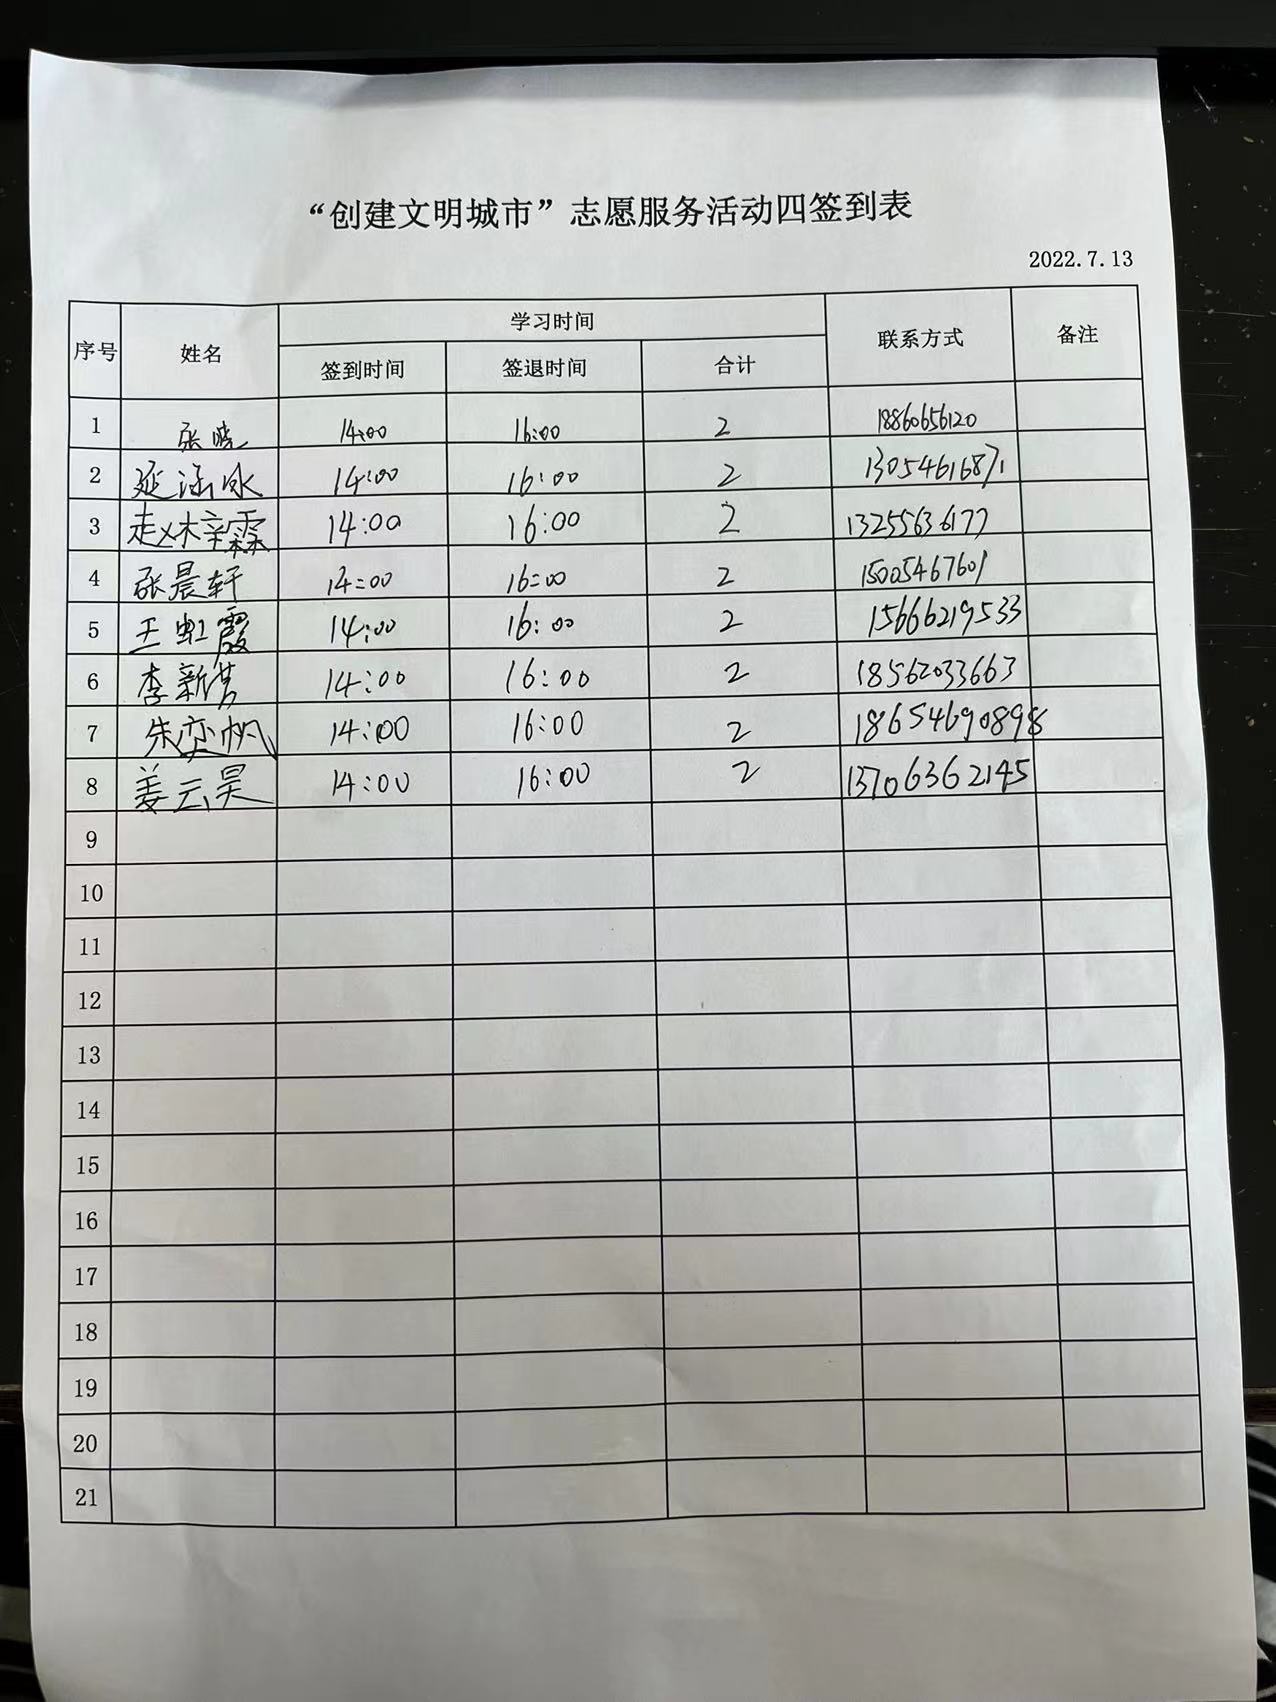 “创建文明城市”志愿服务活动四签到表
2022.7.13
序号 姓名 学习时间 联系方式 备注
签到时间 签退时间 合计
1 张晓 14:00 16:00 2 18860656120
2 延涵冰 14:00 16:00 2 13054616871
3 赵梓霖 14:00 16:00 2 13255636177
4 张晨轩 14:00 16:00 2 15005467601
5 王虹霞 14:00 16:00 2 15666219533
6 李新 14:00 16:00 2 18562033663
7 朱奕帆 14:00 16:00 2 18654690898
8 姜云昊 14:00 16:00 2 13706362145
9
10
11
12
13
14
15
16
17
18
19
20
21